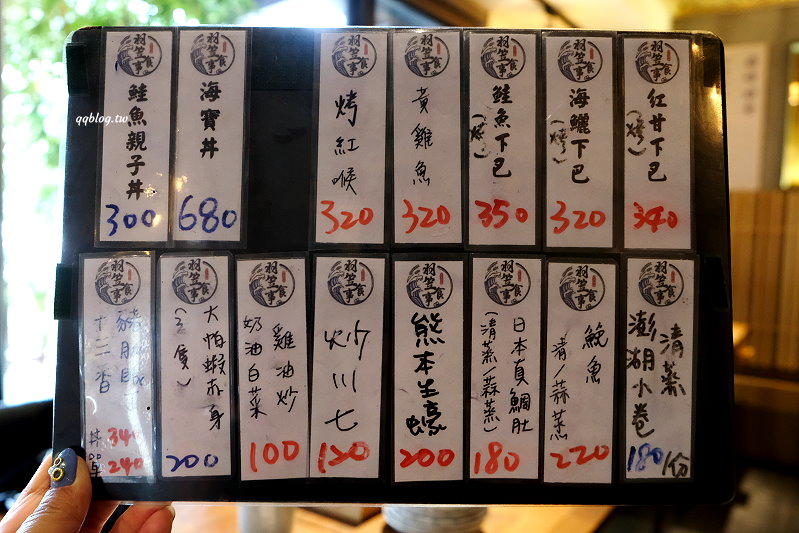 qqblog.tw
羽笠食事
紅甘下巴
(烤)
340
羽笠食事
海鱺下巴
(烤)
320
羽笠食事
鮭魚下巴
(烤)
350
羽笠食事
黃雞魚
320
羽笠食事
烤紅喉
320
羽笠食事
海寶丼
680
羽笠食事
鮭魚親子丼
300
羽笠食事
清蒸
澎湖小卷
180/份
羽笠食事
鮸魚
清/蒜蒸
220
羽笠食事
日本真鯛肚
(清蒸/蒜蒸)
180
羽笠食事
熊本生蠔
200
羽笠食事
炒川七
120
羽笠食事
雞油炒
奶油白菜
100
羽笠食事
大怕蝦赤身
200
羽笠食事
十二香
丼 340
單 240